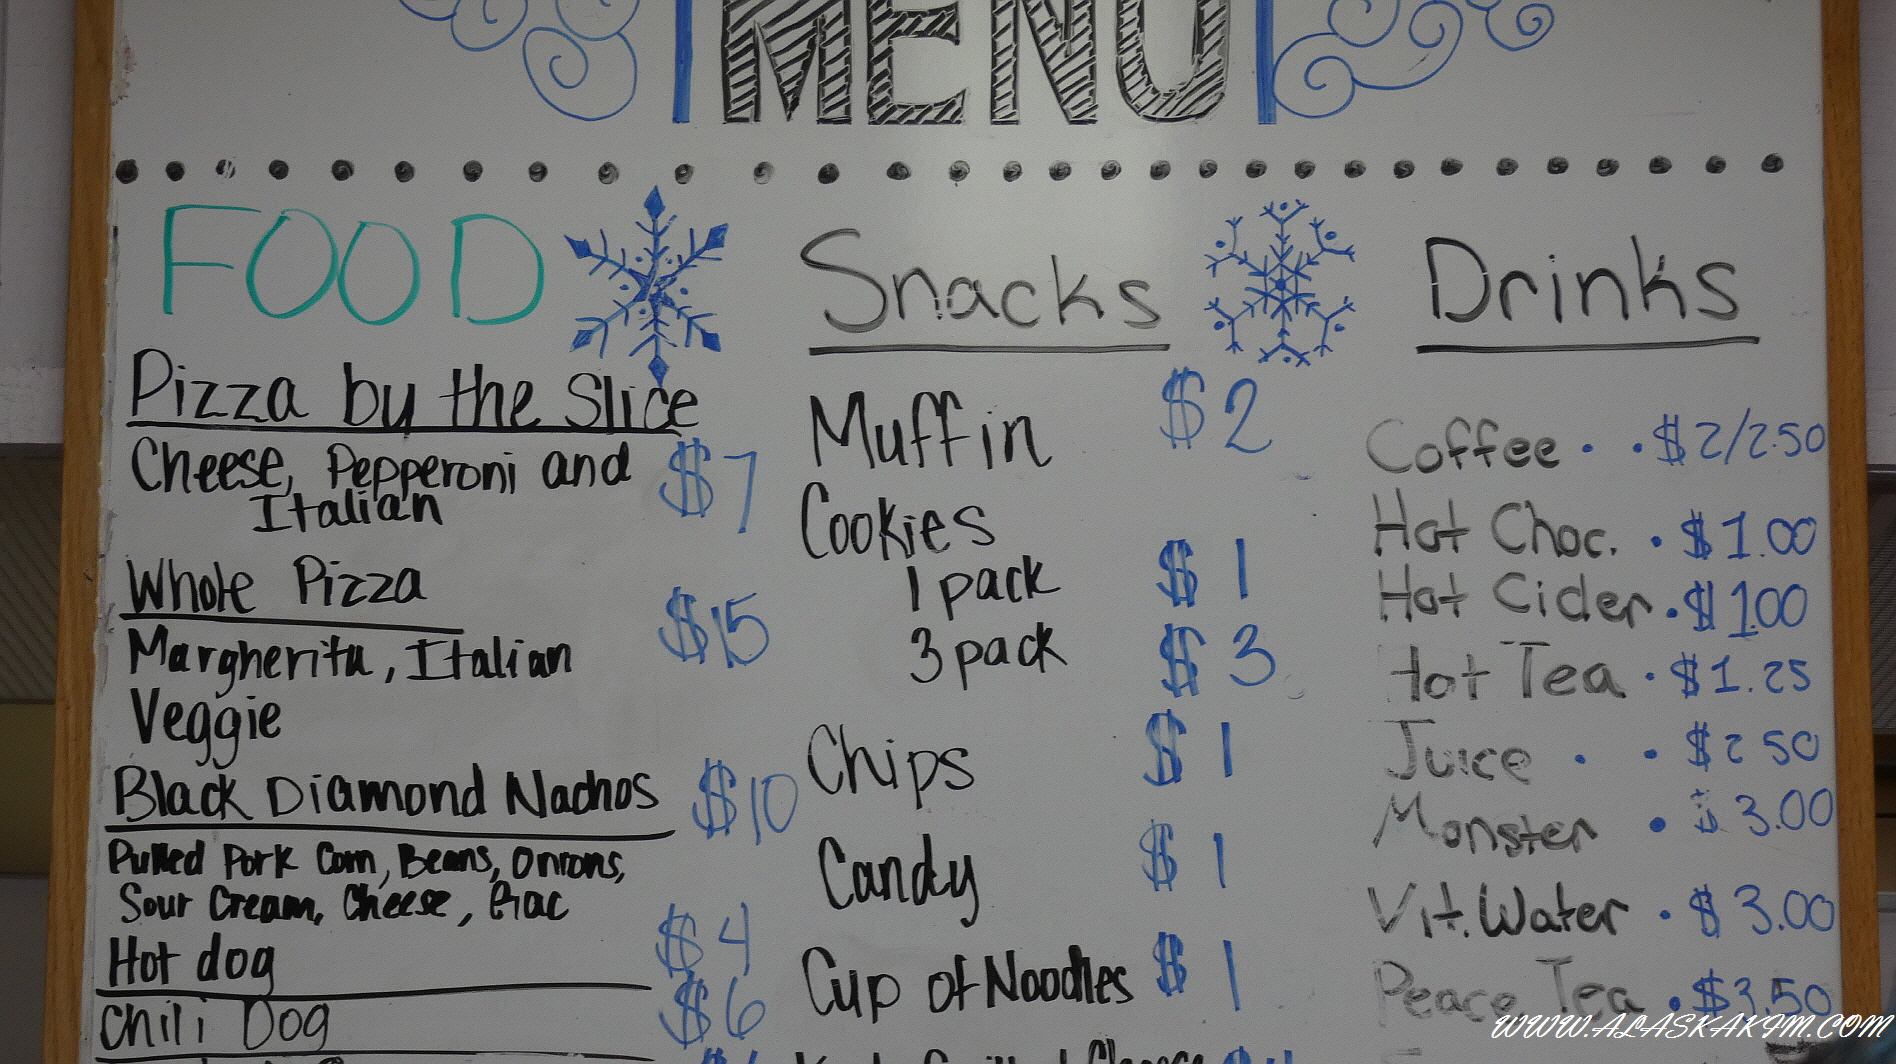 MENU
FOOD
Pizza by the Slice
Cheese, Pepperoni and $7
Italian
Whole Pizza $15
Margherita, Italian
Veggie
Black Diamond Nachos $10
Pulled Pork Corn, Beans, Onions,
Sour Cream, Cheese,
Hot dog $4
Chili Dog $6
Snacks
Muffin $2
Cookies
1 pack $1
3 pack $3
Chips $1
Candy $1
Cup of Noodles $1
Drinks
Coffee . . $2/2.50
Hot Choc. . $1.00
Hot Cider . $1.00
Hot Tea . $1.25
Juice . . $2 50
Monster . $3.00
Vit. Water . $3.00
Peace Tea . $3.50
WWW.ALASKAKIM.COM